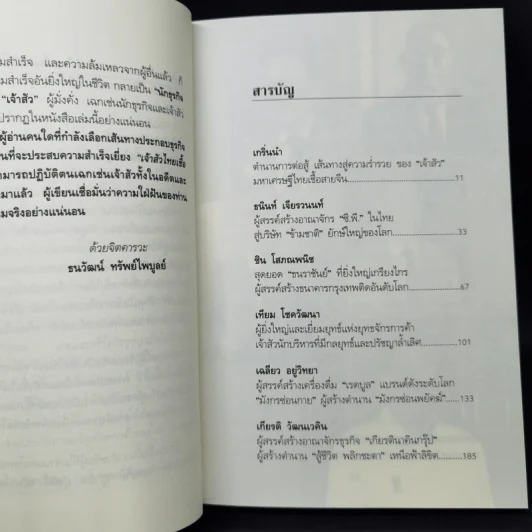 มสำเร็จ และความล้มเหลวจากผู้อื่นแล้ว ก็
ามสำเร็จอันยิ่งใหญ่ในชีวิต กลายเป็น "นักธุรกิจ
"เจ้าสัว" ผู้มั่งคั่ง เฉกเช่นนักธุรกิจและเจ้าสัว
ปรากฏในหนังสือเล่มนี้อย่างแน่นอน
ผู้อ่านคนใดที่กำลังเลือกเส้นทางประกอบธุรกิจ
นที่จะประสบความสำเร็จเยี่ยง "เจ้าสัวไทยเชื้อ
ามารถปฏิบัติตนเฉกเช่นเจ้าสัวทั้งในอดีตและ
มาแล้ว ผู้เขียนเชื่อมั่นว่าความใฝ่ฝันของท่าน
มจริงอย่างแน่นอน
ด้วยจิตคารวะ
ธนวัฒน์ ทรัพย์ไพบูลย์
สารบัญ
เกริ่นนำ
ตำนานการต่อสู้ เส้นทางสู่ความร่ำรวย ของ "เจ้าสัว"
มหาเศรษฐีไทยเชื้อสายจีน 11
ธนินท์ เจียรวนนท์
ผู้สรรค์สร้างอาณาจักร "ซี.พี." ในไทย
สู่บริษัท "ข้ามชาติ" ยักษ์ใหญ่ของโลก 33
ชิน โสภณพนิช
สุดยอด "ธนราชันย์" ที่ยิ่งใหญ่เกรียงไกร
ผู้สรรค์สร้างธนาคารกรุงเทพติดอันดับโลก 67
เทียม โชควัฒนา
ผู้ยิ่งใหญ่และเยี่ยมยุทธ์แห่งยุทธจักรการค้า
เจ้าสัวนักบริหารที่มีกลยุทธ์และปรัชญาล้ำเลิศ 101
เฉลียว อยู่วิทยา
ผู้สรรค์สร้างเครื่องดื่ม "เรดบูล" แบรนด์ดังระดับโลก
"มังกรซ่อนกาย" ผู้สร้างตำนาน "มังกรซ่อนพยัคฆ์" 133
เกียรติ วัฒนเวคิน
ผู้สรรค์สร้างอาณาจักรธุรกิจ "เกียรตินาคินกรุ๊ป"
ผู้สร้างตำนาน "สู้ชีวิต พลิกชะตา" เหนือฟ้าลิขิต 185